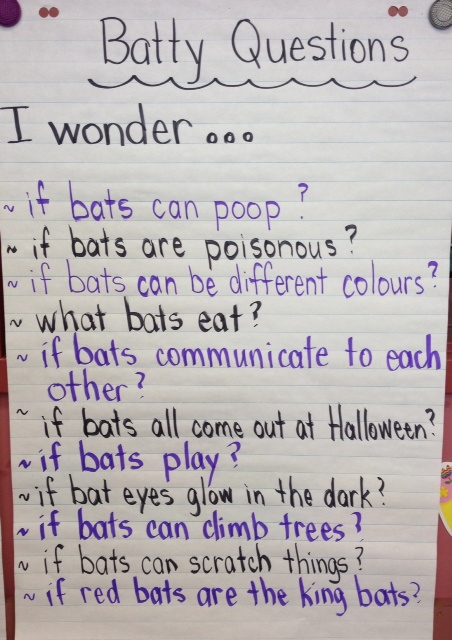 Batty Questions
I wonder...
~ if bats can poop?
~ if bats are poisonous?
~ if bats can be different colours?
~ what bats eat?
~ if bats communicate to each
other?
~ if bats all come out at Halloween?
~ if bats play?
~ if bat eyes glow in the dark?
~ if bats can climb trees?
~ if bats can scratch things?
~ if red bats are the king bats?